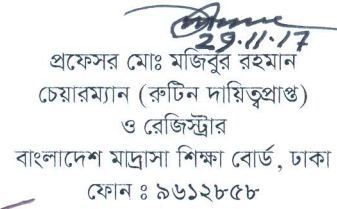 29.11.17
প্রফেসর মোঃ মজিবুর রহমান
চেয়ারম্যান (রুটিন দায়িত্বপ্রাপ্ত)
ও রেজিস্ট্রার
বাংলাদেশ মাদ্রাসা শিক্ষা বোর্ড, ঢাকা
ফোন : ৯৬১২৮৫৮